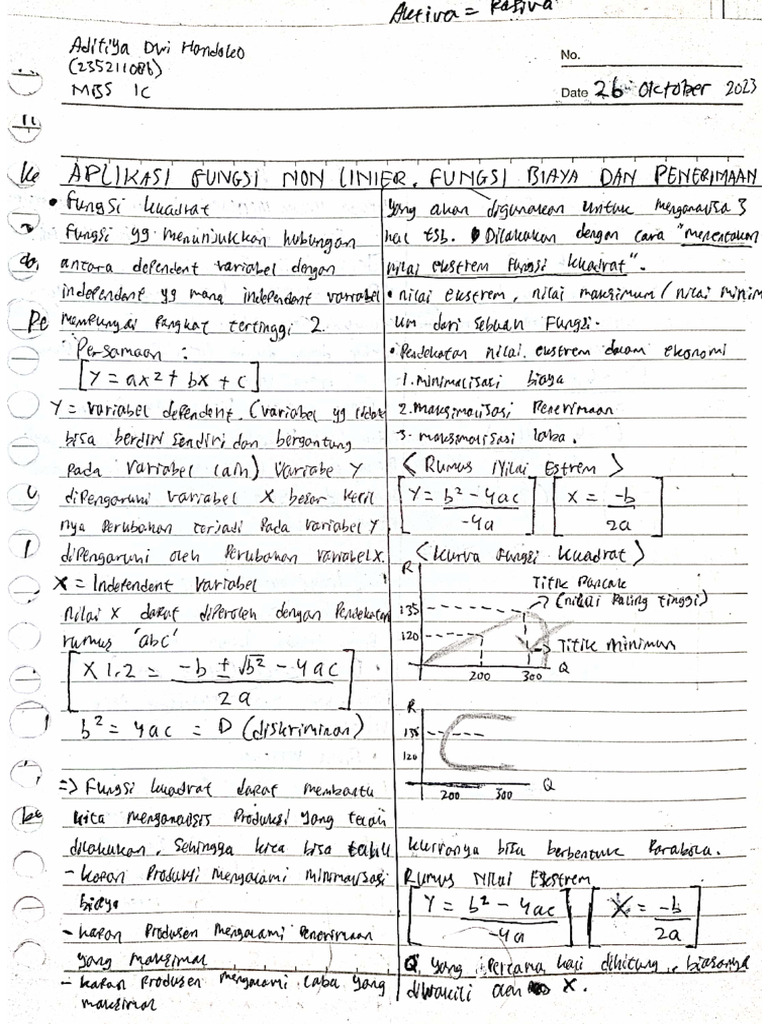 Aktiva = Pasiva
Aditiya Dwi Handoko
(235211086)
MBS 1C
No.
Date 26 Oktober 2023
APLIKASI FUNGSI NON LINIER, FUNGSI BIAYA DAN PENERIMAAN
• Fungsi kuadrat
Fungsi yg menunjukkan hubungan
antara dependent variabel dengan
independent yg mana independent variabel
mempunyai Pangkat tertinggi 2.
Persamaan :
[Y = ax² + bx + c]
Y = variabel dependent. (variabel yg tidak
bisa berdiri sendiri dan bergantung
pada variabel lain) Variabe Y
dipengaruhi variabel X besar kecil
nya Perubahan terjadi Pada variabel Y
dipengaruhi oleh Perubahan variabel X.
X = Independent Variabel
Nilai X dapat diperoleh dengan Pendekatan
rumus 'abc'
[X 1.2 = -b ± √b² - 4ac / 2a]
b² = 4ac = D (diskriminan)
=> Fungsi kuadrat dapat membantu
kita menganalisis Produksi yang telah
dilakukan, Sehingga kita bisa tahu
- kapan Produksi mengalami minimalisasi
biaya
- kapan Produsen mengalami Penerimaan
yang maksimal
- kapan Produsen mengalami laba yang
maksimal
yang akan digunakan untuk menganalisa 3
hal tsb. Dilakukan dengan cara "menentukan
nilai ekstrem fungsi kuadrat".
• nilai ekstrem, nilai maksimum / nilai minim
um dari sebuah Fungsi.
• Pendekatan nilai ekstrem dalam ekonomi
1. minimalisasi biaya
2. maksimalisasi Penerimaan
3. maksimalisasi laba.
< Rumus Nilai Estrem >
[Y = b² - 4ac / -4a] [X = -b / 2a]
< Kurva Fungsi kuadrat >
R
Titik Puncak
135
(nilai Paling tinggi)
120
Titik minimum
200 300 Q
R
135
120
200 300 Q
kurvanya bisa berbentuk Parabola.
Rumus Nilai Ekstrem
[Y = b² - 4ac / -4a] [X = -b / 2a]
Q yang Pertama kali dihitung, biasanya
diwakili oleh X.